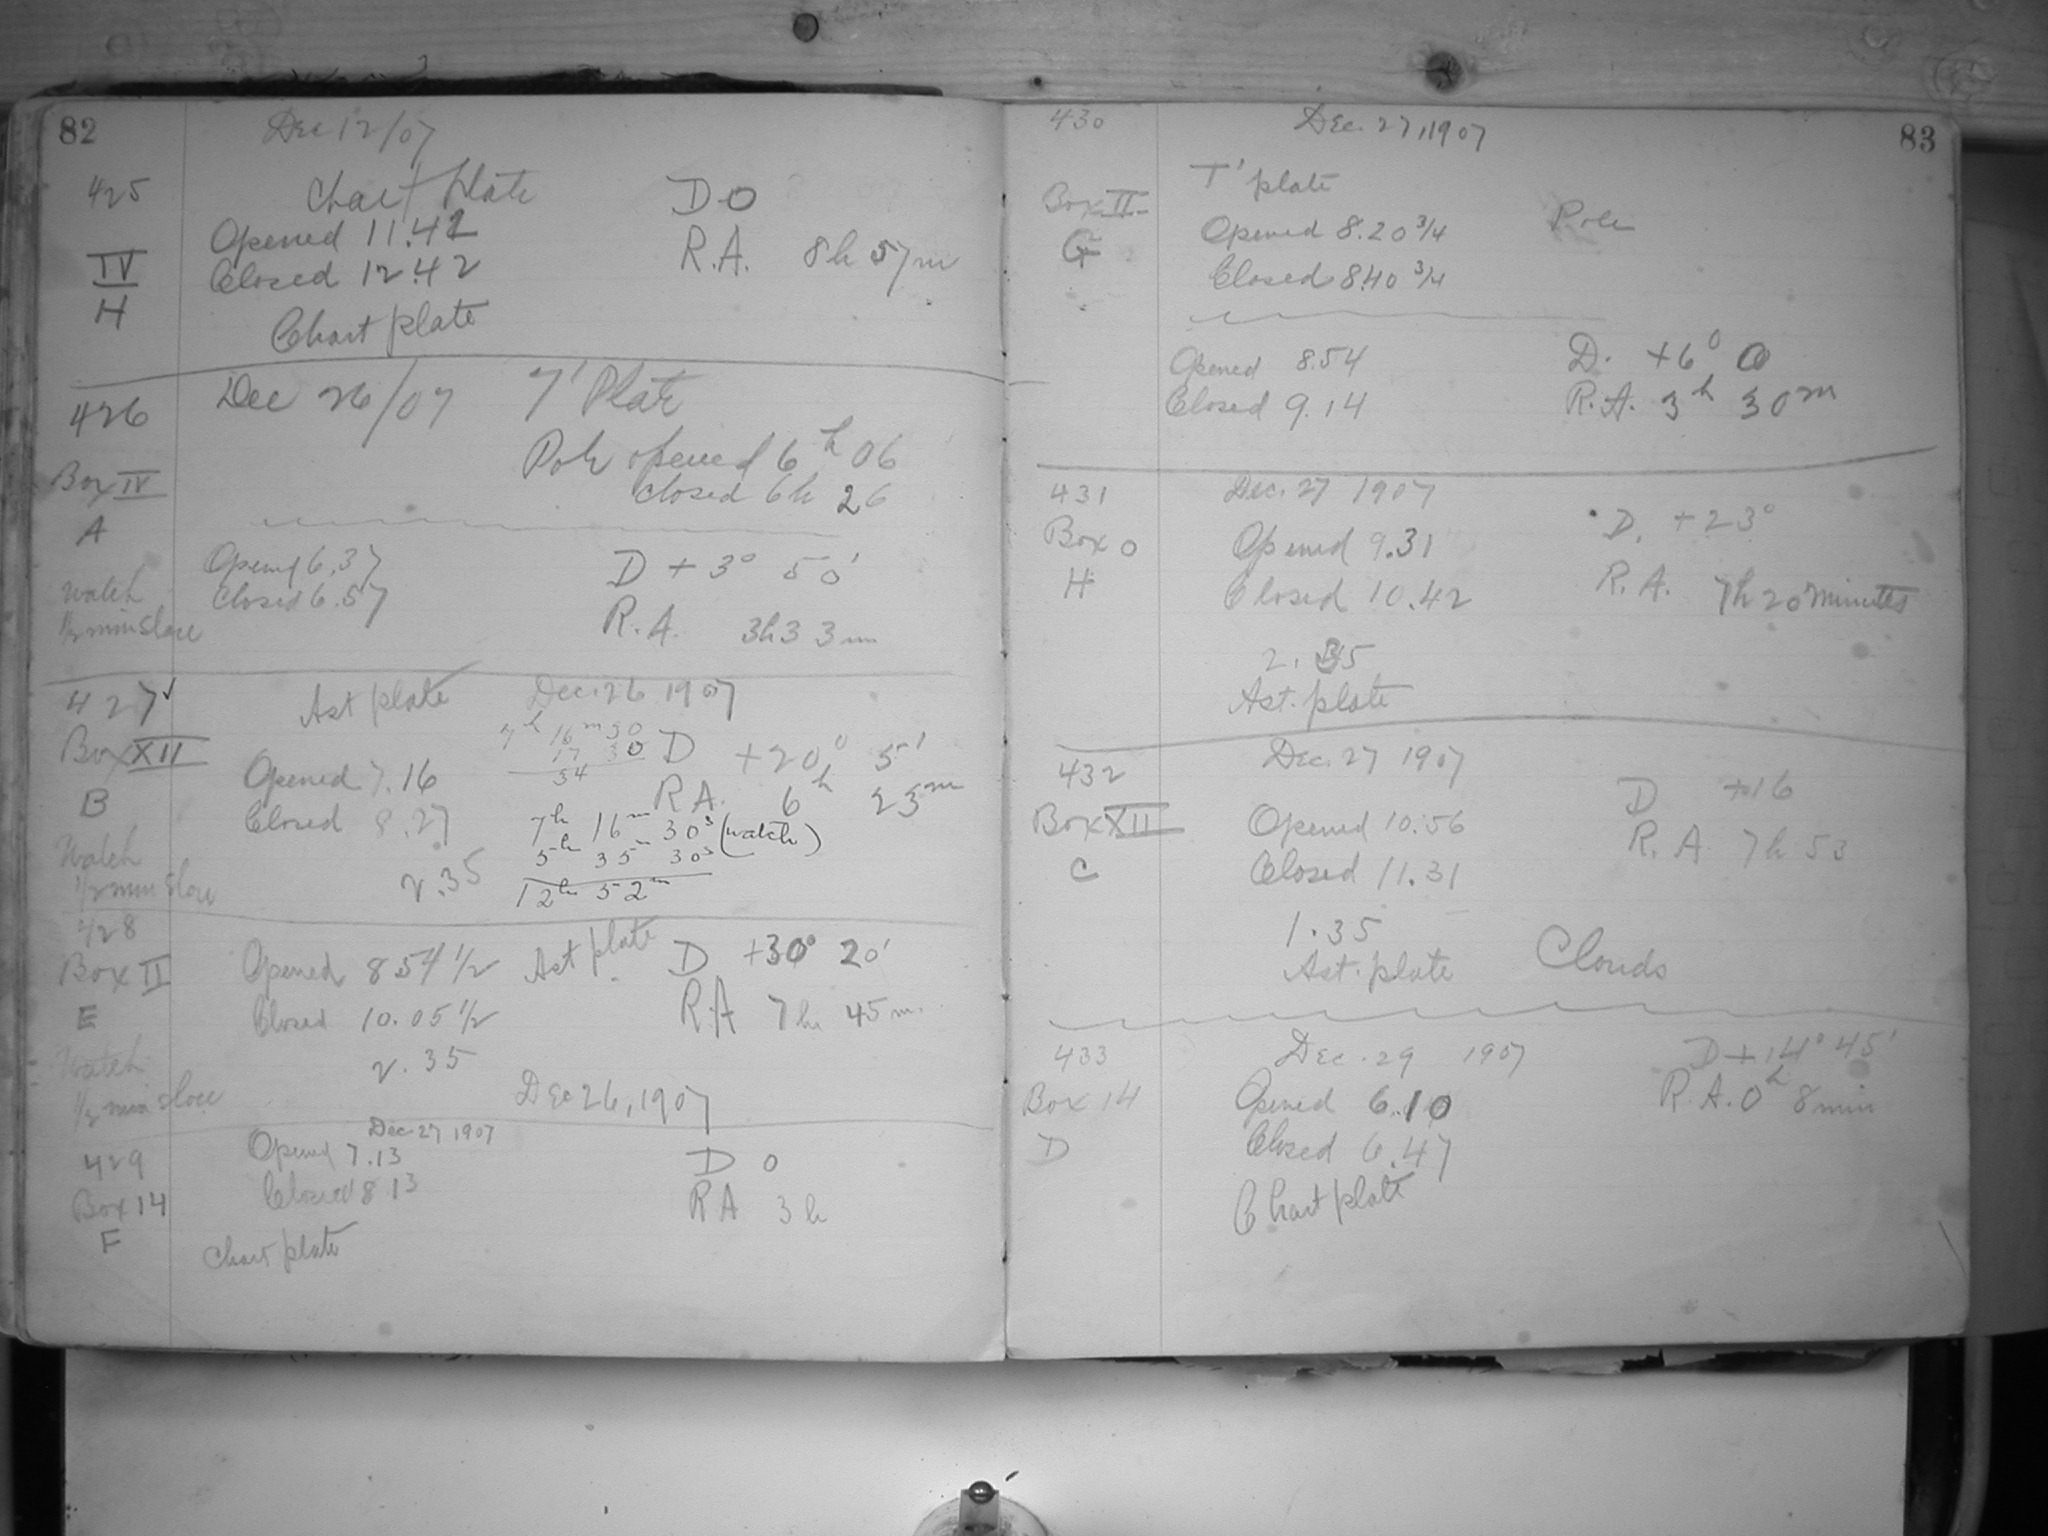 82
Dec 12/07
425
Chart plate
D 0
Opened 11.42
R.A. 8h 57m
IV
Closed 12.42
H
Chart plate
426
Dec 26/07 T' Plate
Pole opened 6h 06
closed 6h 26
Box IV
A
Opened 6.37
D + 3° 50'
Closed 6.57
R.A. 3h 33m
watch
1/2 min slow
427 ✓
Ast plate Dec. 26 1907
7h 16m 30
17 30
34
Box XII
D +20° 5'
Opened 7.16
R A. 6h 23m
B
Closed 8.27
7h 16m 30s (watch)
5h 35m 30s
12h 52m
Watch
1/2 min slow
2.35
428
Box II
Opened 8 54 1/2 Ast plate D +30° 20'
E
Closed 10.05 1/2
R.A 7h 45m.
Watch
1/2 min slow
2.35
Dec 26, 1907
Dec 27 1907
429
Opened 7.13
D 0
Box 14
Closed 8 13
RA 3h
F
Chart plate
430
Dec. 27, 1907
83
T' plate
Box II
Opened 8.20 3/4
Pole
G
Closed 8.40 3/4
Opened 8.54
D. +6° 0
Closed 9.14
R.A. 3h 30m
431
Dec. 27 1907
D. +23°
Box 0
Opened 9.31
H
Closed 10.42
R.A. 7h 20 minutes
2.35
Ast. plate
432
Dec. 27 1907
D +16
Box XII
Opened 10.56
R.A. 7h 53
C
Closed 11.31
1.35
Ast. plate Clouds
433
Dec. 29 1907
D +14° 45'
Box 14
Opened 6.10
R.A. 0h 8 min
D
Closed 6.47
Chart plate